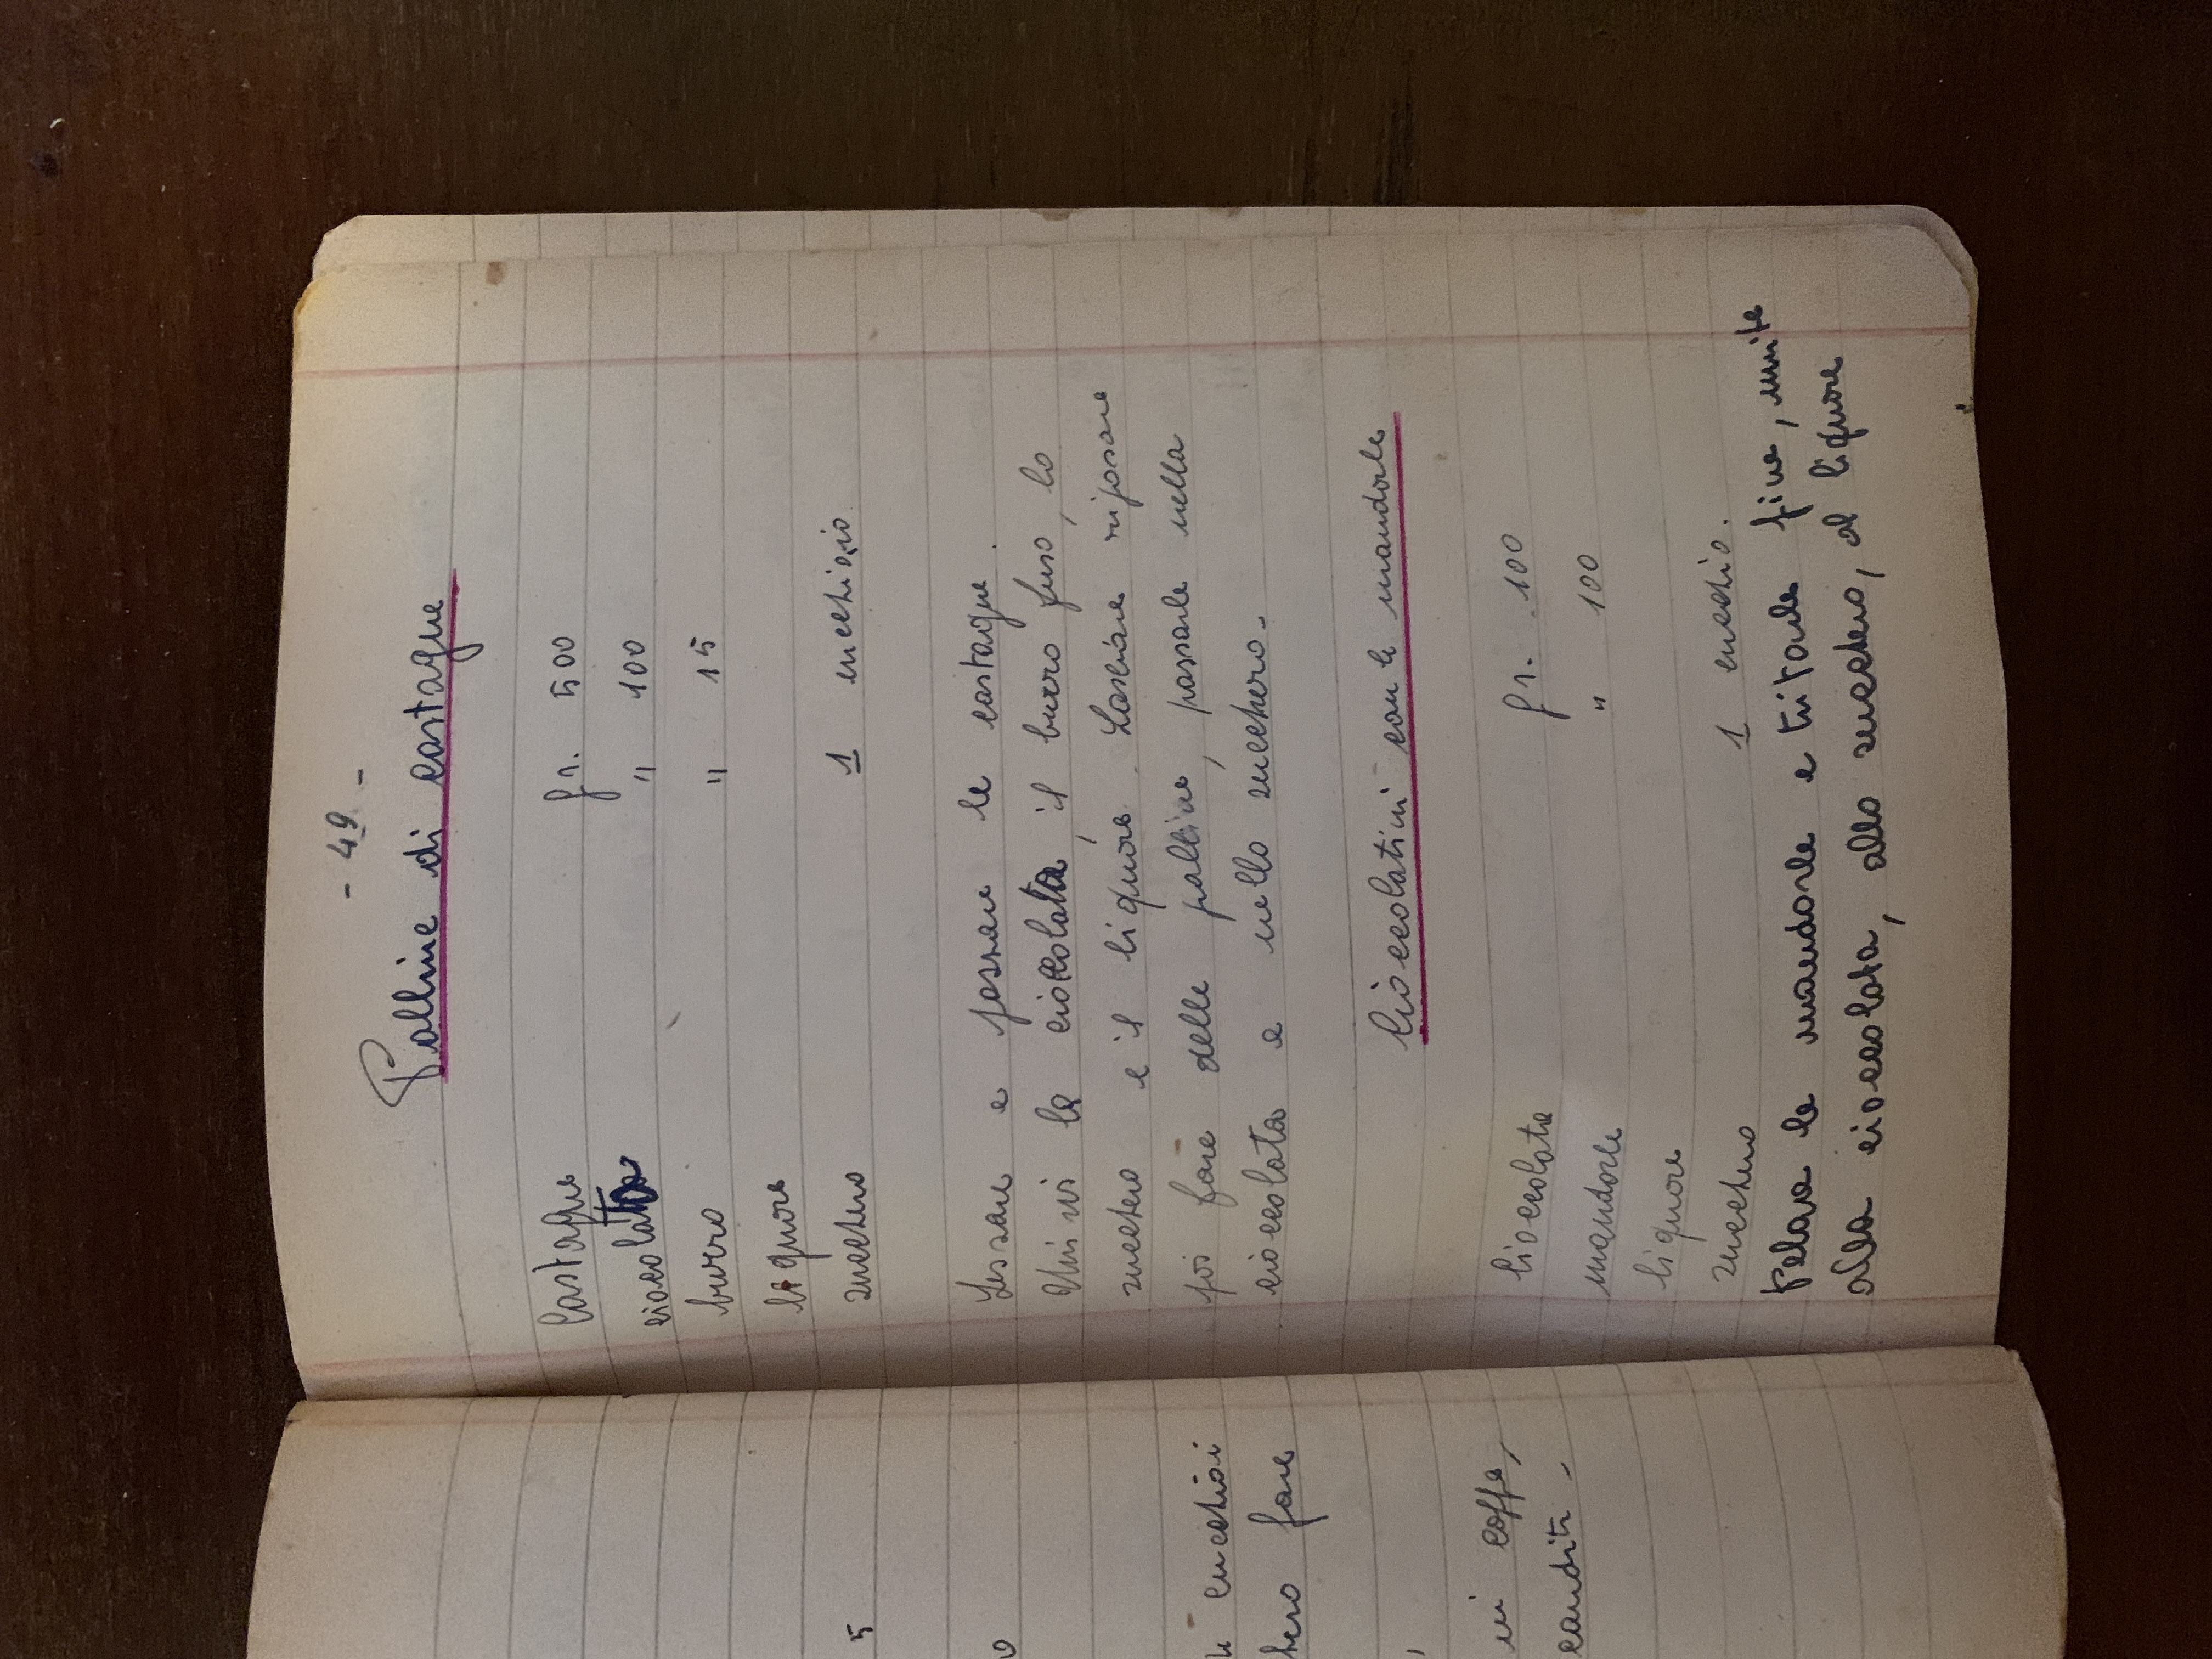 5
o
cucchiai
fare
,
in coppe,
canditi -
- 49 -
Palline di castagne
Castagne gr. 500
ciocolata " 100
burro " 15
liquore
zucchero 1 cucchiaio
Lessare e passare le castagne.
Unirvi la cioccolata, il burro fuso, lo
zucchero e il liquore. Lasciare riposare
poi fare delle palline, passarle nella
cioccolata e nello zucchero-
Cioccolatini con le mandorle
Cioccolata gr. 100
mandorle " 100
liquore
zucchero 1 cucchio.
Pelare le mandorle e tritarle fine, unite
alla cioccolata, allo zucchero, al liquore